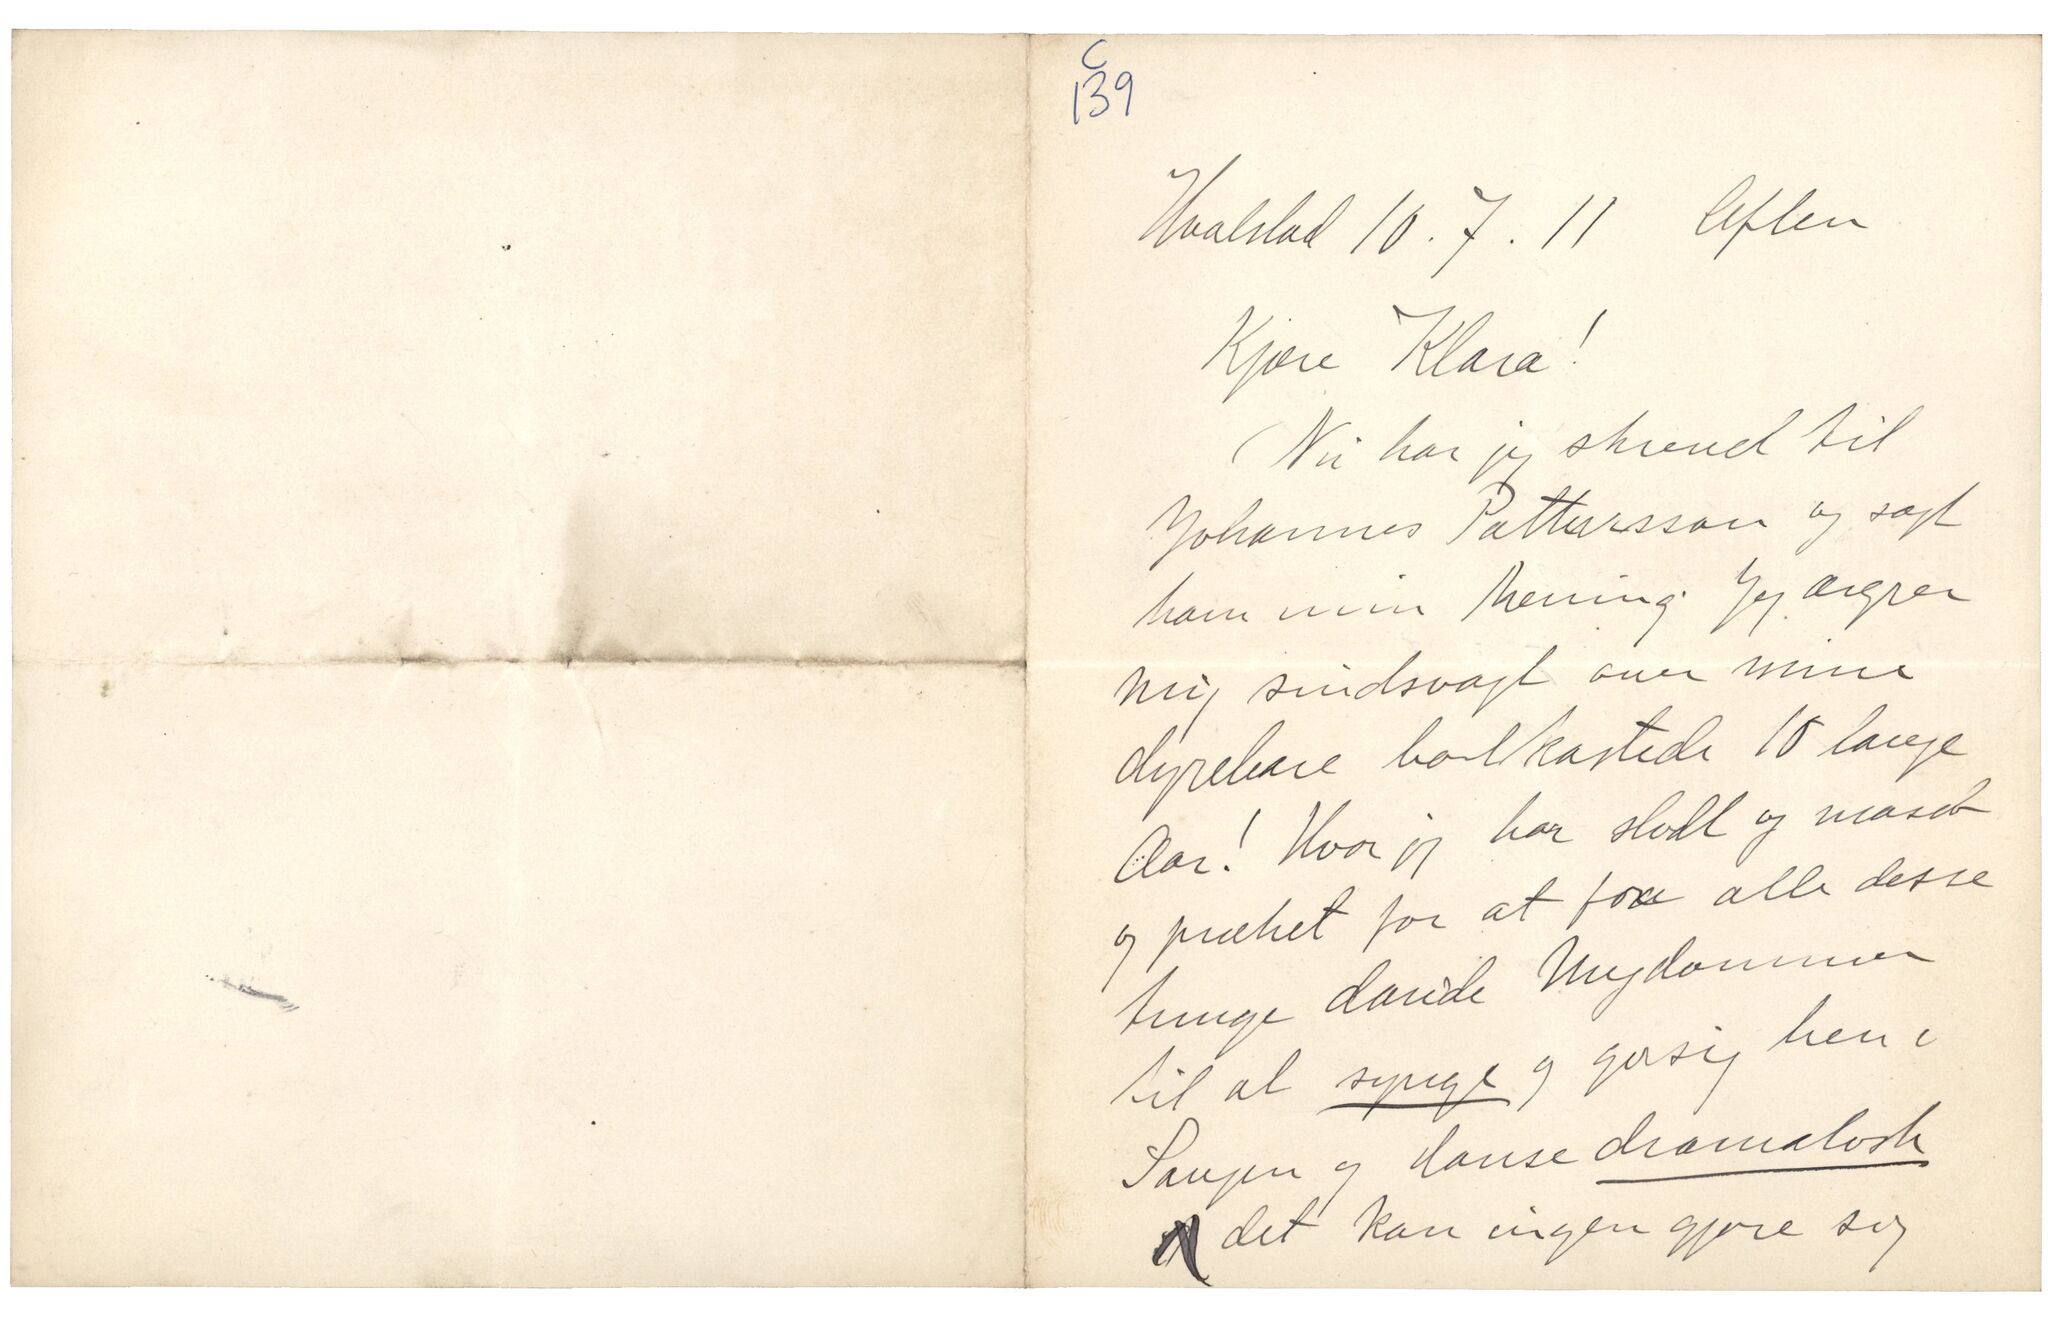 C
139
Hvalstad 10.7.11 Aften
Kjære Klara!
Nu har jeg skrevet til
Johannes Pattursson og sagt
ham min Mening. Jeg ærgrer
mig sindsvagt over mine
dyrebare bortkastede 10 lange
Aar! Hvor jeg har slidt og maset
og præket for at faa alle disse
tunge Ungdommer
til at synge og gi sig hen i
Sangen og danse dramatisk
det kan ingen gjøre sig